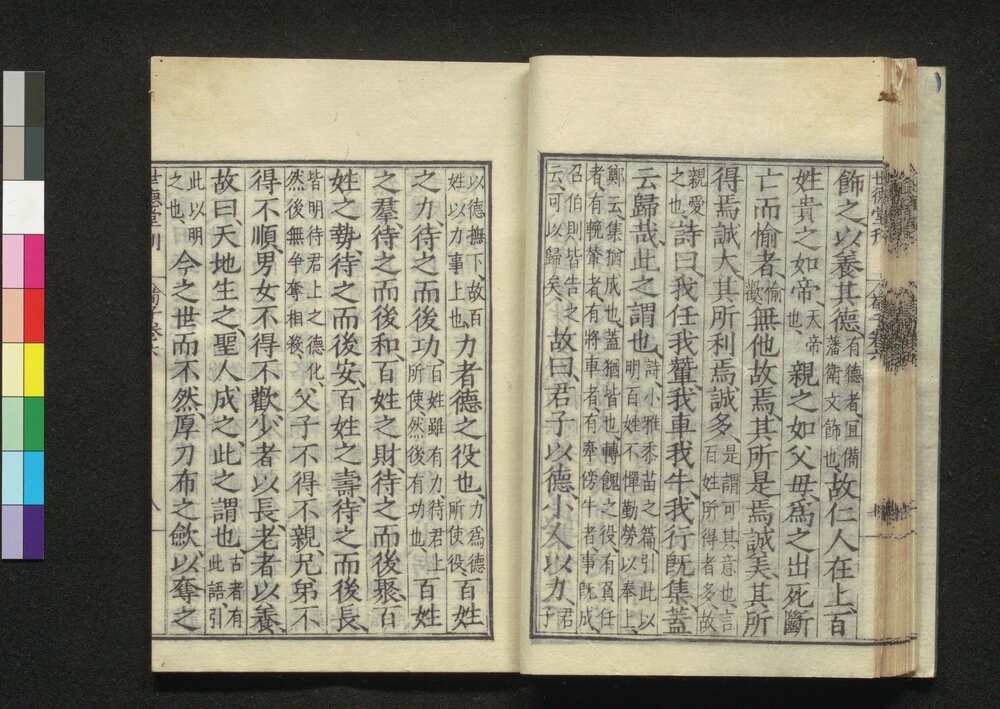 世德堂刊
飾之以養其德、有德者、宜備藩衛文飾也、故仁人在上、百
姓貴之如帝、天帝也、親之如父母、爲之出死斷
亡而愉者、愉歡無他故焉、其所是焉誠美、其所
得焉誠大、其所利焉誠多、是謂可其意也、言百姓所得者多故
親愛之也、詩曰、我任我輦、我車我牛、我行既集、蓋
云歸哉、此之謂也、詩、小雅黍苗之篇、引此以明百姓不憚勤勞以奉上、
鄭云、集猶成也、蓋猶皆也、轉餫之役、有負任者、有輓輦者、有將車者、有牽傍牛者、事既成、
召伯則皆告之云、可以歸矣、故曰、君子以德、小人以力、君子
以德撫下、故百姓以力事上也、力者德之役也、力爲德所使役、百姓
之力、待之而後功、百姓雖有力待君上所使、然後有功也、百姓
之羣、待之而後和、百姓之財、待之而後聚、百
姓之勢、待之而後安、百姓之壽、待之而後長、
皆明待君上之德化、然後無爭奪相殺、父子不得不親、兄弟不
得不順、男女不得不歡、少者以長、老者以養、
故曰、天地生之、聖人成之、此之謂也、古者有此語引
此以明之也、今之世而不然、厚刀布之斂、以奪之
世德堂刊